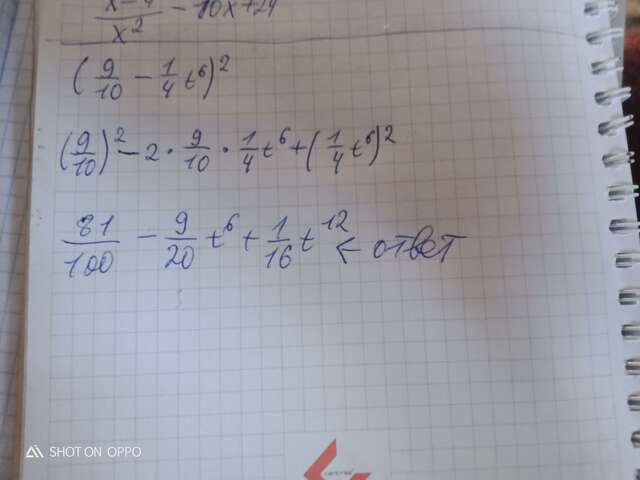 x² - 10x+24
(9/10 - 1/4 t⁶)²
(9/10)² - 2 · 9/10 · 1/4 t⁶ + (1/4 t⁶)²
81/100 - 9/20 t⁶ + 1/16 t¹² ← ответ
SHOT ON OPPO